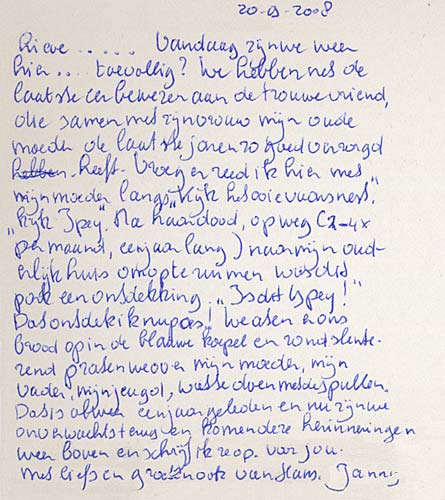 20-03-2008
Lieve ..... Vandaag zijn we weer
hier .... toevallig? We hebben net de
laatste eer bewezen aan de trouwe vriend,
die samen met zijn vrouw mijn oude
moeder de laatste jaren zo goed verzorgd
hebben heeft. Vroeger reed ik hier met
mijn moeder langs "Kijk het ooievaarsnest",
"Kijk Ypey". Na haar dood, op weg (2-4x
per maand, een jaar lang) naar mijn oud-
erlijk huis om op te ruimen was dit
park een ontdekking: "Is dat Ypey!"
Dat ontdek ik nu pas! We aten er ons
brood op in de blauwe koepel en rondslente-
rend praten we over mijn moeder, mijn
vader, mijn jeugd, wat te doen met de spullen.
Dat is alweer een jaar geleden en nu zijn we
onverwachts terug en komen deze herinneringen
weer boven en schrijf ik ze op voor jou.
met liefs en groet van Hans. Janny